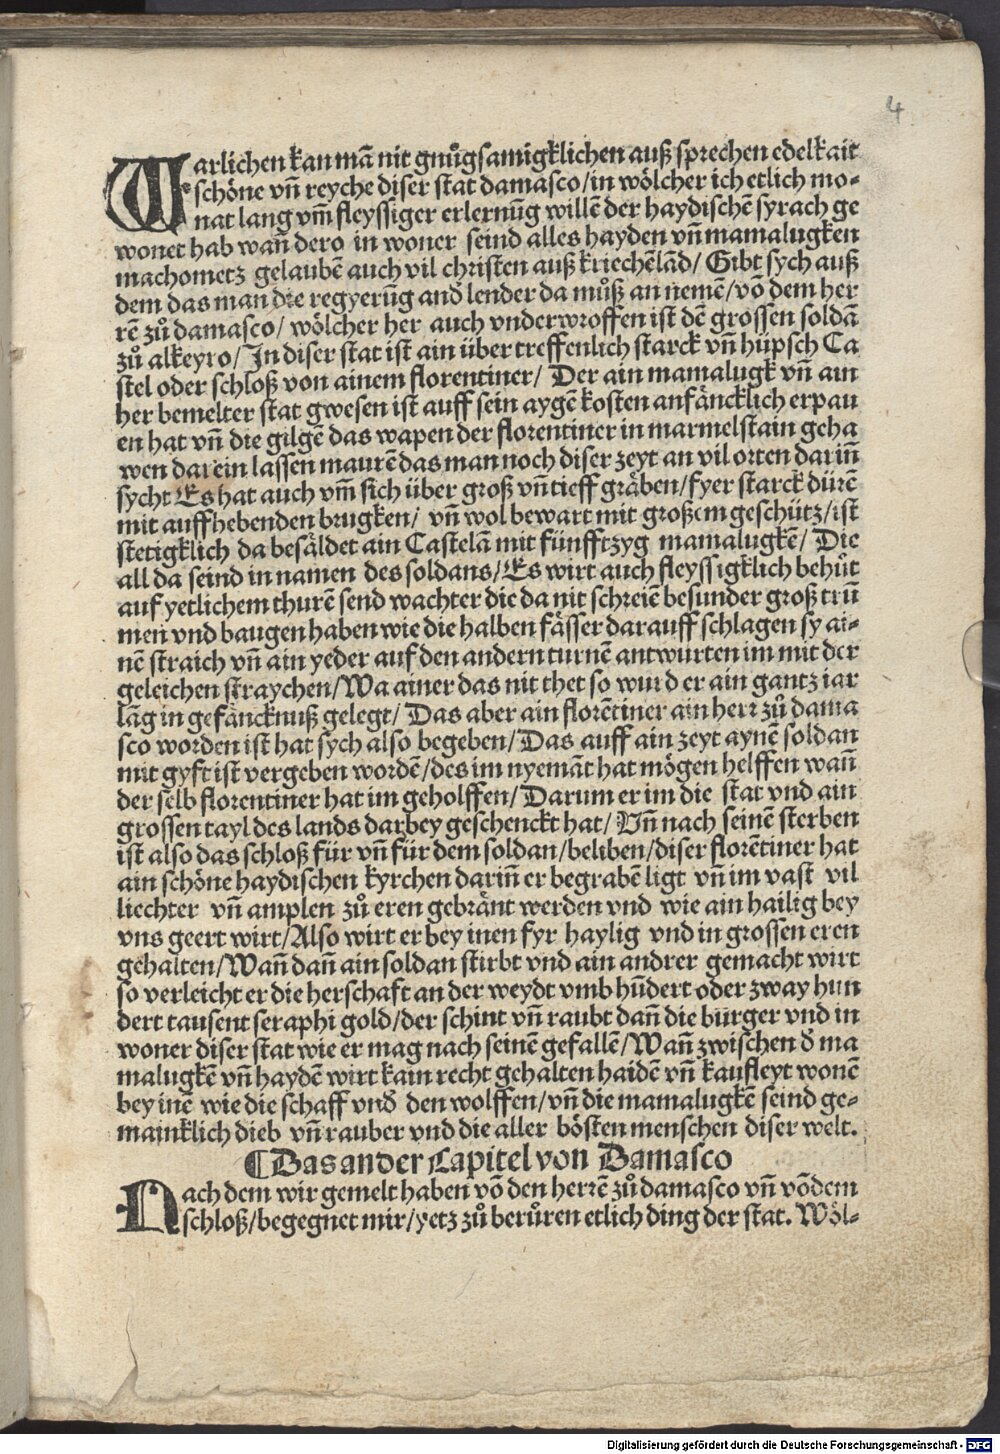 4
Warlichen kan mā nit gnůgsamigklichen auß sprechen edelkait
schöne vn̄ reyche diser stat damasco/in wölcher ich etlich mo-
nat lang vm̄ fleyssiger erlernūg willē der haydischē syrach ge
wonet hab wan̄ dero in woner seind alles hayden vn̄ mamalugken
machometz gelaubē auch vil christen auß kriechēlād/ Gibt sych auß
dem das man die regyerūg and̄ lender da můß an nemē/vō dem her
rē zů damasco/ wölcher her auch vnderwroffen ist dē grossen soldā
zů alkeyro/In diser stat ist ain über treffenlich starck vn̄ hüpsch Ca
stel oder schloß von ainem florentiner/ Der ain mamalugk vn̄ ain
her bemelter stat gwesen ist auff sein aygē kosten anfäncklich erpau
en hat vn̄ die gilgē das wapen der florentiner in marmelstain geha
wen darein lassen maurē das man noch diser zeyt an vil orten darin̄
sycht Es hat auch vm̄ sich über groß vn̄ tieff gräben/fyer starck dürē
mit auffhebenden brugken/ vn̄ wol bewart mit großem geschütz/ist
stetigklich da besäldet ain Castelā mit fünfftzyg mamalugkē/ Die
all da seind in namen des soldans/Es wirt auch fleyssigklich behůt
auf yetlichem thurē send wachter die da nit schreiē besunder groß trū
men vnd baugen haben wie die halben fässer darauff schlagen sy ai-
nē straich vn̄ ain yeder auf den andern turnē antwurten im mit der
geleichen straychen/Wa ainer das nit thet so wurd er ain gantz iar
lāg in gefäncknuß gelegt/ Das aber ain florētiner ain herr zů dama
sco worden ist hat sych also begeben/Das auff ain zeyt aynē soldan
mit gyft ist vergeben wordē/des im nyemāt hat mögen helffen wan̄
der selb florentiner hat im geholffen/Darum er im die stat vnd ain
grossen tayl des lands darbey geschenckt hat/ Vn̄ nach seinē sterben
ist also das schloß für vn̄ für dem soldan/beliben/diser florētiner hat
ain schöne haydischen kyrchen darin̄ er begrabē ligt vn̄ im vast vil
liechter vn̄ amplen zů eren gebränt werden vnd wie ain hailig bey
vns geert wirt/Also wirt er bey inen fyr haylig vnd in grossen eren
gehalten/Wan̄ dan̄ ain soldan stirbt vnd ain andrer gemacht wirt
so verleicht er die herschaft an der weydt vmb hūdert oder zway hun
dert tausent seraphi gold/der schint vn̄ raubt dan̄ die burger vnd in
woner diser stat wie er mag nach seinē gefallē/Wan̄ zwischen d̄ ma
malugkē vn̄ haydē wirt kain recht gehalten haidē vn̄ kaufleyt wonē
bey inē wie die schaff vnd̄ den wolffen/vn̄ die mamalugkē seind ge-
mainklich dieb vn̄ rauber vnd die aller bösten menschen diser welt.
¶Das ander Capitel von Damasco
Nach dem wir gemelt haben vō den herrē zů damasco vn̄ vō dem
schloß/begegnet mir/yetz zů berůren etlich ding der stat. Wöl-
Digitalisierung gefördert durch die Deutsche Forschungsgemeinschaft - DFG